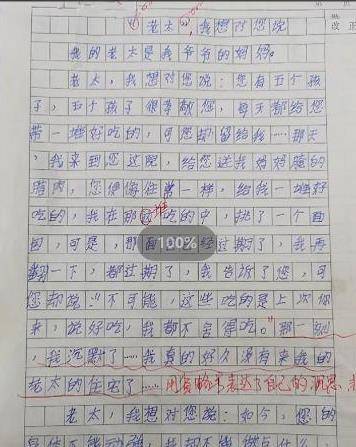 "老太",我想对您说
我的老太是我爷爷的妈妈。
老太,我想对您说:您有五个孩
子,五个孩子很孝敬您,每天都给您
带一堆好吃的,可您却留给我……那天
,我来到您过院,给您送我妈妈腌的
腊肉,您便像往常一样,给我一堆好
吃的,我在那堆吃的中,挑了一个面
包,可是,那面包已经过期了,我再
翻一下,都过期了,我告诉了您,可
您却说:"不可能,这些吃的是上次你
来,说好吃,我都不舍得吃。"那一刻
,我沉默了……我真的好久没有来我的
老太的住宅了……用省略号表达了自己的沉思
老太,我想对您说:如今,您的
100%
改正